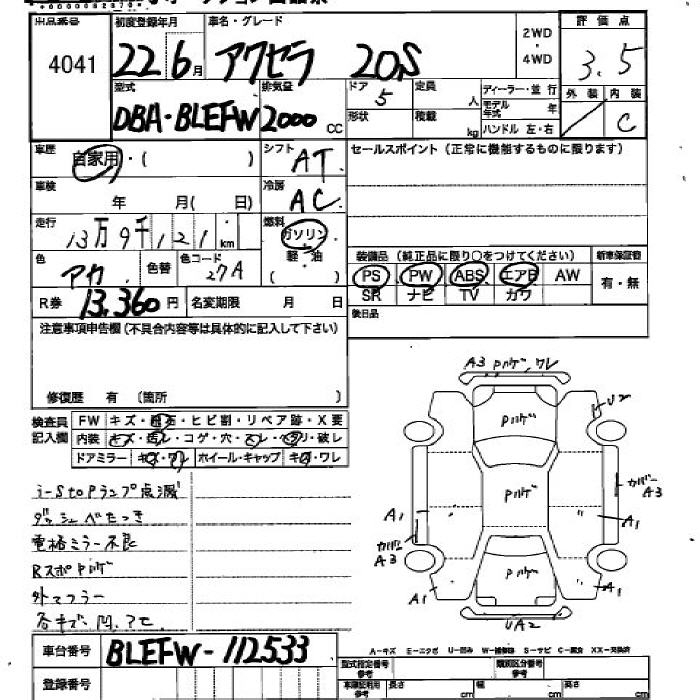 出品番号 初度登録年月 車名・グレード 2WD ・ 4WD 評価点
4041 22 6月 アクセラ 20S 3.5
外装 内装
C
型式 排気量 ドア 定員 ディーラー・並行
DBA・BLEFW 2000cc 5 人 モデル年式 年
形状 積載 kg ハンドル 左・右
車歴 自家用・( ) シフト AT セールスポイント(正常に機能するものに限ります)
車検 年 月( 日) 冷房 AC
走行 13万9千121km 燃料 ガソリン・軽・油 ( )
色 アカ 色替 色コード 27A
装備品(純正品に限り○をつけてください) 新車保証書
PS PW ABS エアB AW 有・無
SR ナビ TV カワ
R券 13,360円 名変期限 月 日
後日品
注意事項申告欄(不具合内容等は具体的に記入して下さい)
修復歴 有 (箇所 )
検査員記入欄 FW キズ・飛石・ヒビ割・リペア跡・X要
内装 キズ・汚レ・コゲ・穴・スレ・ヘタリ・破レ
ドアミラー キズ・ワレ ホイール・キャップ キズ・ワレ
i-Stopランプ点滅
ダッシュベたつき
電格ミラー不良
RスポPハゲ
外マフラー
各キズ、凹、アセ
A3 Pハゲ、ワレ
Pハゲ
U2
Pハゲ
カバー A3
A1
A1
カバー A3
Pハゲ
A1
A1
UA2
車台番号 BLEFW-112533
登録番号
A-キズ E-エクボ U-凹み W-補修跡 S-サビ C-腐食 XX-交換済
型式指定番号 参考 類別区分番号 参考
車庫証明用 参考 長さ cm 幅 cm 高さ cm